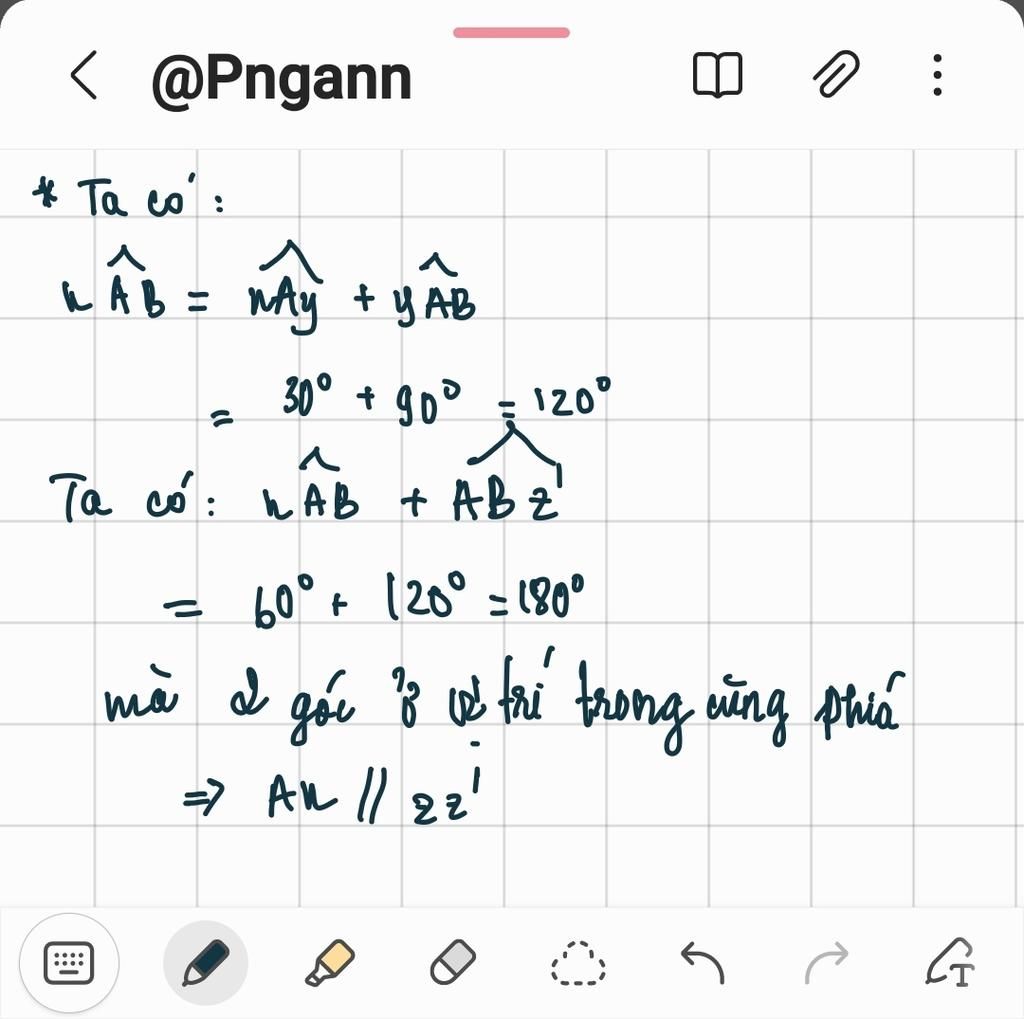 @Pngann
* Ta có:
xÂB = xAy + yÂB
= 30° + 90° = 120°
Ta có: xÂB + ABz'
= 60° + 120° = 180°
mà 2 góc ở vị trí trong cùng phía
=> Ax // zz'